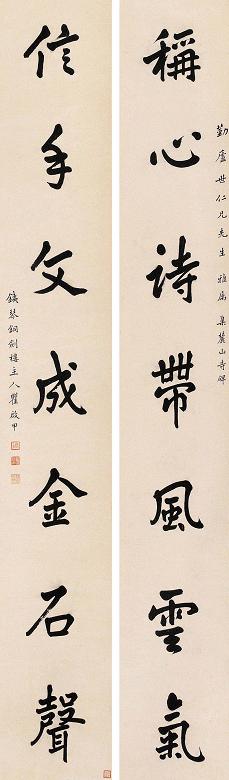 勤廬世仁兄先生 雅屬 集麓山寺碑
稱心詩帶風雲氣
信手文成金石聲
鐵琴銅劍樓主人瞿啟甲